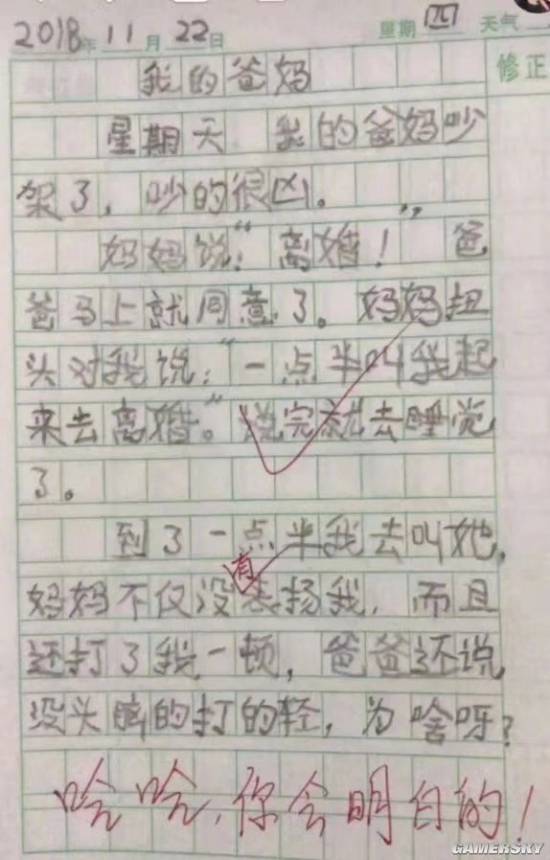 2018年11月22日 星期四 天气
修正
我的爸妈
星期天 我的爸妈吵
架了，吵的很凶。
妈妈说：“离婚！”爸
爸马上就同意了。妈妈扭
头对我说：“一点半叫我起
来去离婚。”说完就去睡觉
了。
到了一点半我去叫她，
有
妈妈不仅没表扬我，而且
还打了我一顿，爸爸还说
没头脑的打的轻，为啥呀？
哈哈，你会明白的！
GAMERSKY